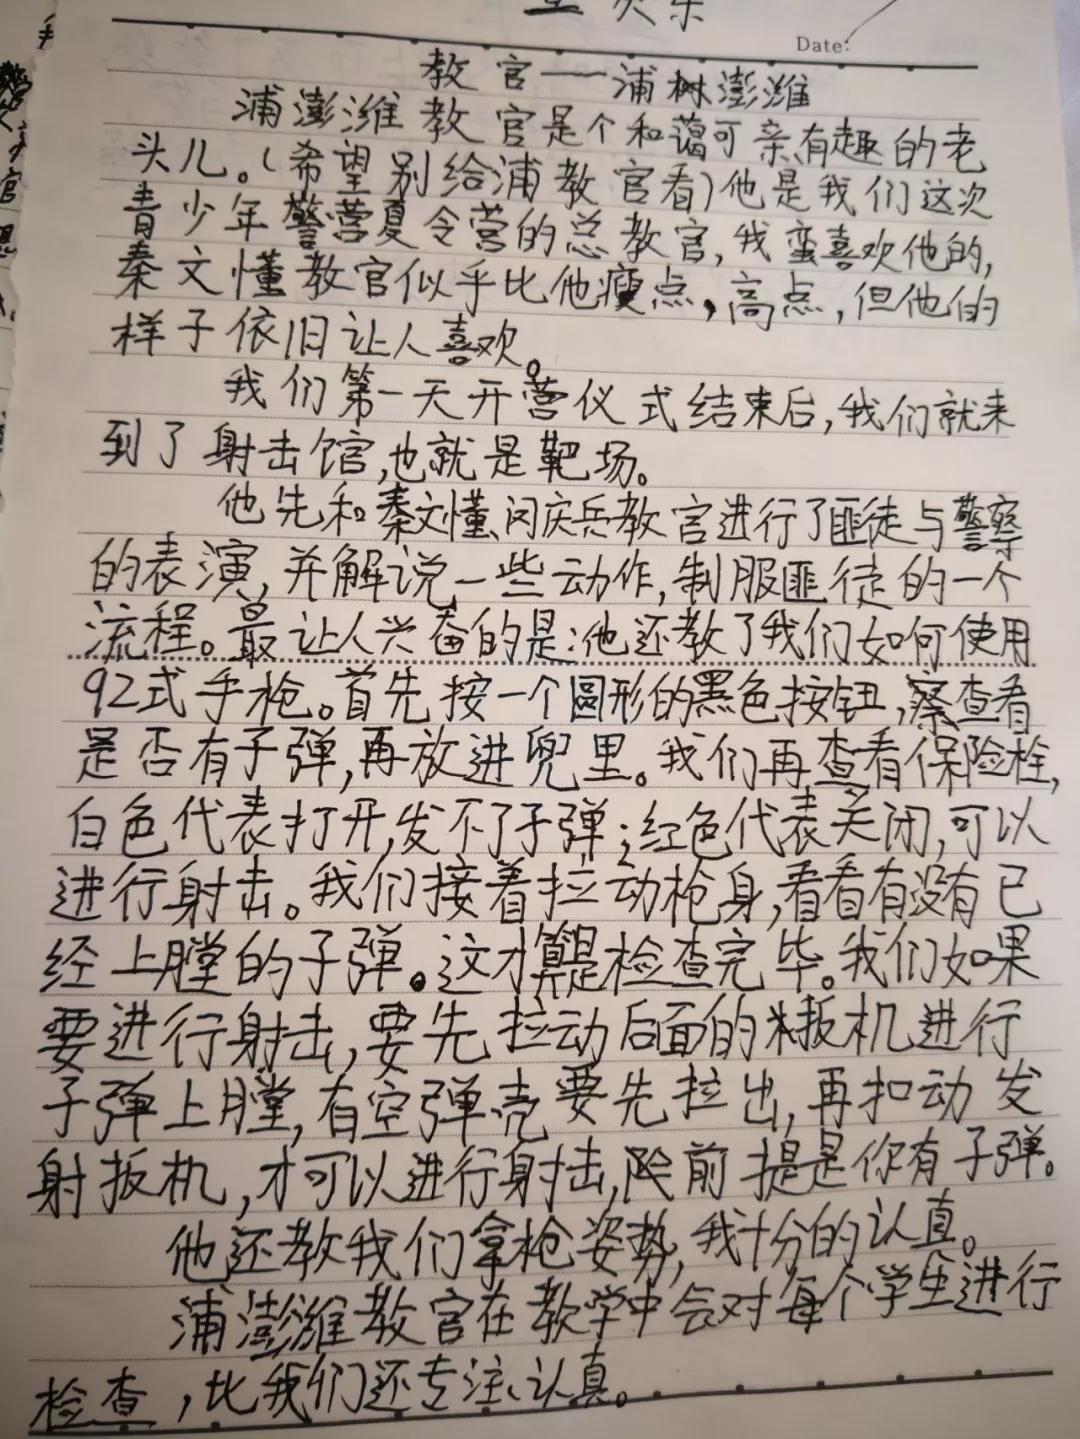 Date:
教官——浦树澎潍
浦澎潍教官是个和蔼可亲有趣的老
头儿。(希望别给浦教官看)他是我们这次
青少年警营夏令营的总教官,我蛮喜欢他的,
秦文懂教官似乎比他瘦点,高点,但他的
样子依旧让人喜欢。
我们第一天开营仪式结束后,我们就来
到了射击馆,也就是靶场。
他先和秦文懂、闵庆兵教官进行了匪徒与警察
的表演,并解说一些动作,制服匪徒的一个
流程。最让人兴奋的是:他还教了我们如何使用
92式手枪。首先按一个圆形的黑色按钮,察查看
是否有子弹,再放进兜里。我们再查看保险栓,
白色代表打开,发不了子弹;红色代表关闭,可以
进行射击。我们接着拉动枪身,看看有没有已
经上膛的子弹。这才算是检查完毕。我们如果
要进行射击,要先拉动后面的扳机进行
子弹上膛,有空弹壳要先拉出,再扣动发
射扳机,才可以进行射击,前提是你有子弹。
他还教我们拿枪姿势,我十分的认真。
浦澎潍教官在教学中会对每个学生进行
检查,比我们还专注、认真。